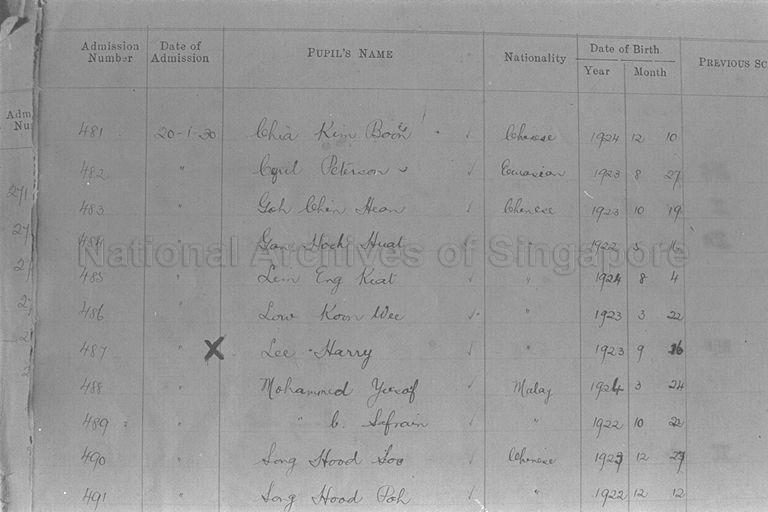 Admission Number Date of Admission PUPIL'S NAME Nationality Date of Birth Year Month PREVIOUS SC
Adm Nu
481 20-1-30 Chia Kim Boon Chinese 1924 12 10
482 " Cyril Peterson Eurasian 1923 8 27
271 483 " Goh Chin Hean Chinese 1923 10 19
27 484 " Hock Huat " 1922 16
National Archives of Singapore
485 " Lim Eng Kiat " 1924 8 4
486 " Low Koon Wee " 1923 3 22
487 " X Lee Harry " 1923 9 16
488 " Mohammed Yusof Malay 1924 3 24
489 " " " 1922 10 22
490 " Song Hood Chinese 1923 12
491 " Song Hood Poh " 1922 12 12